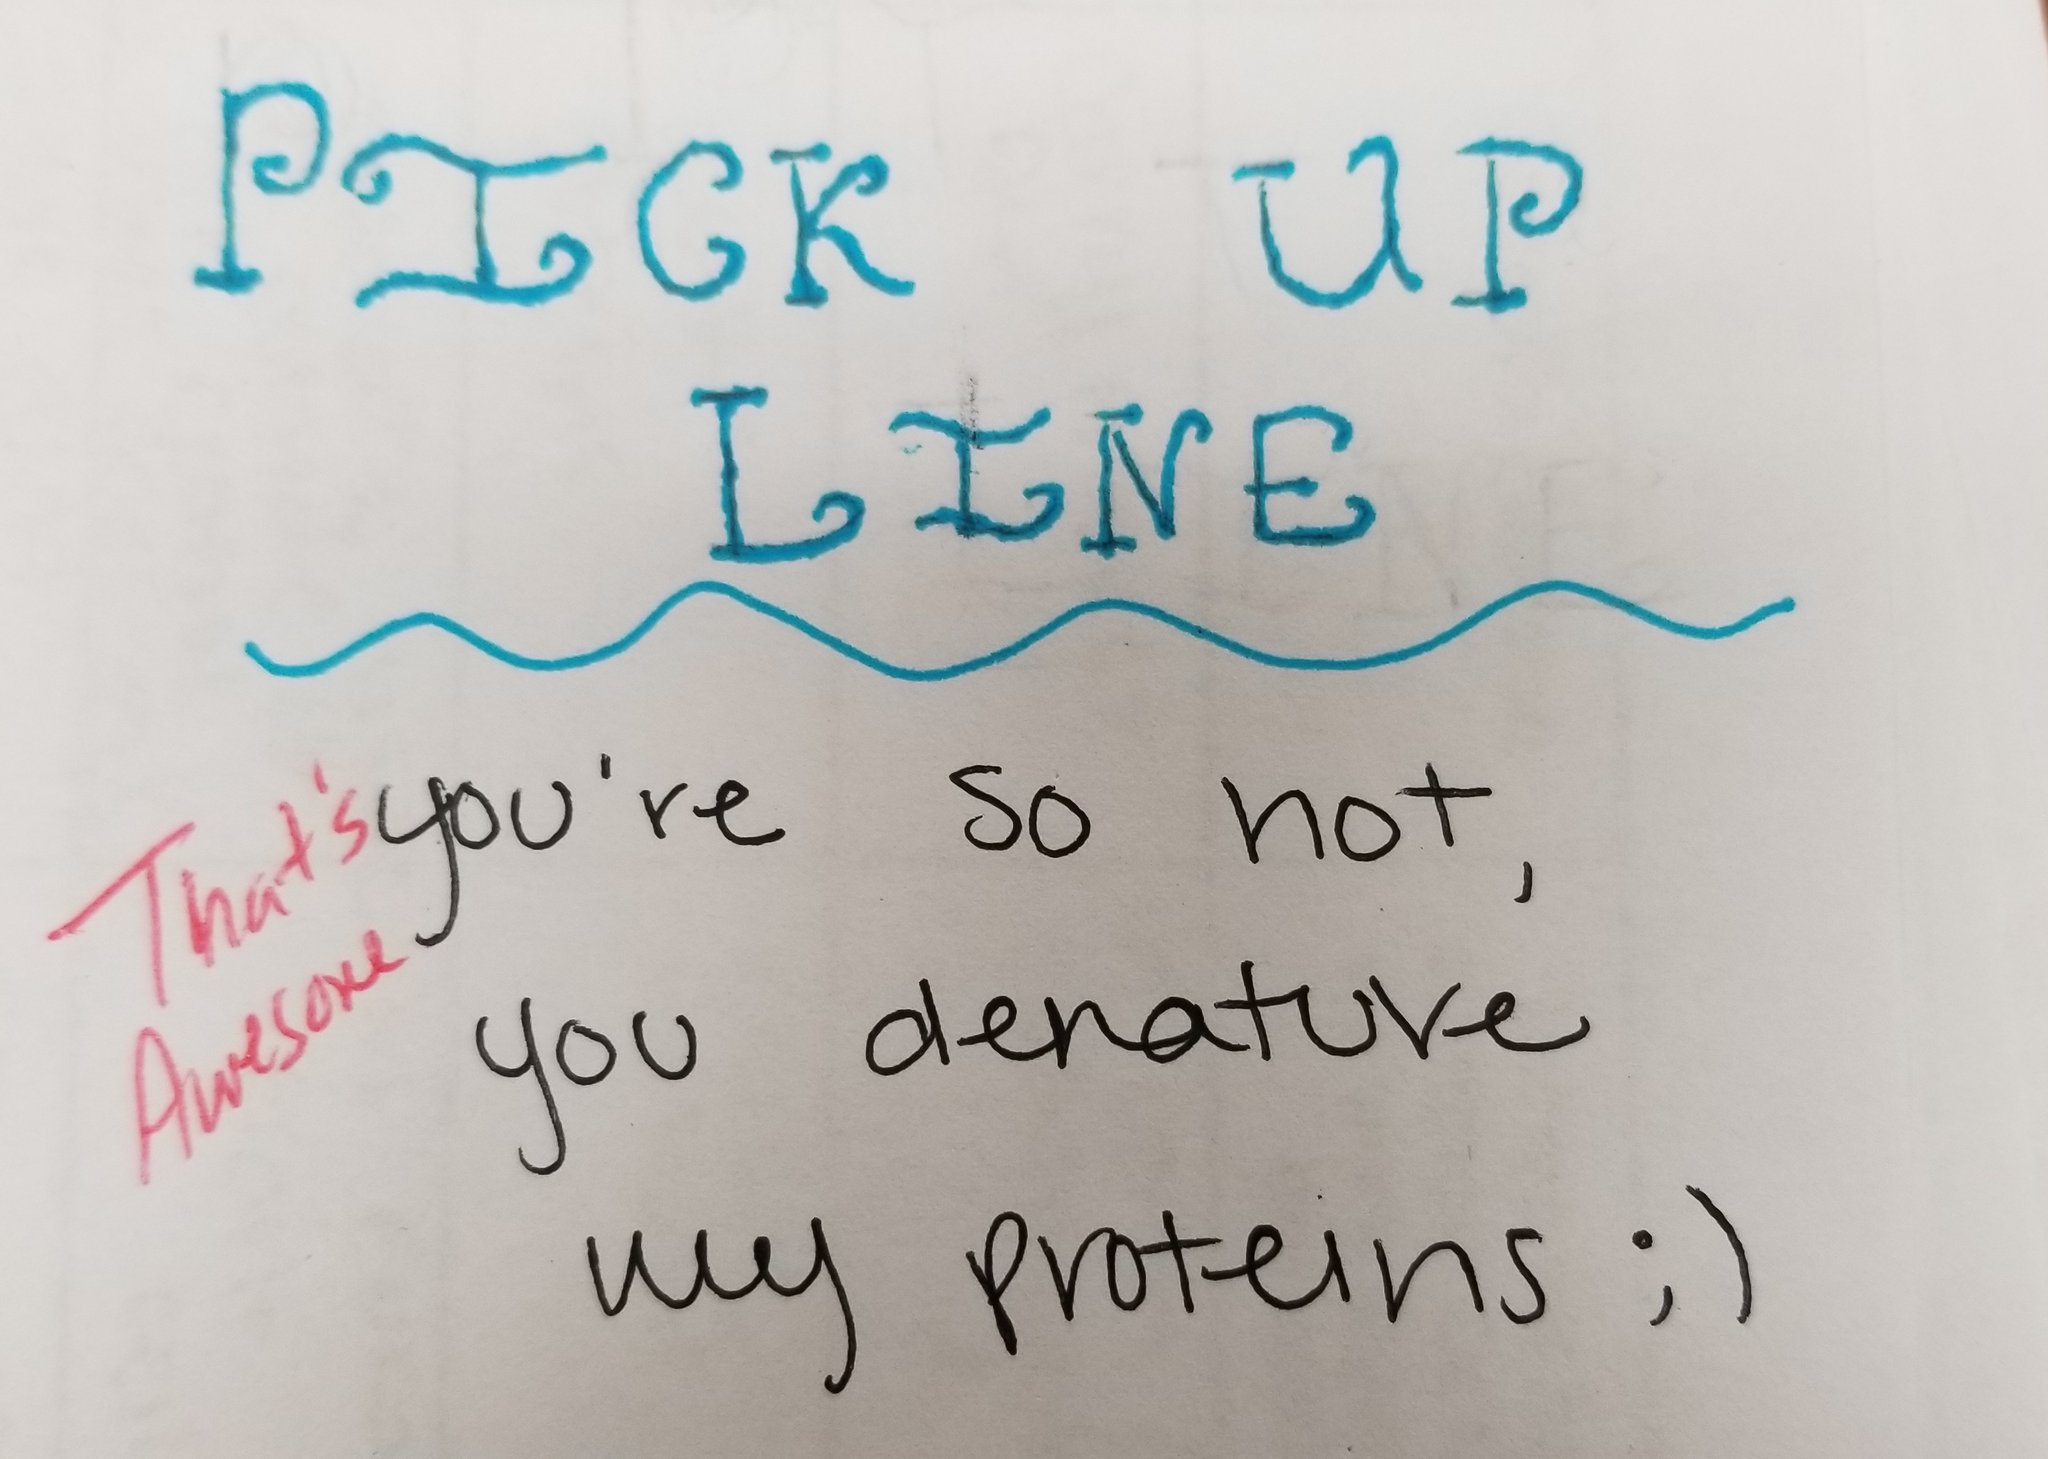 PICK UP
LINE
you're so hot,
you denature
my proteins ;)
That's
Awesome